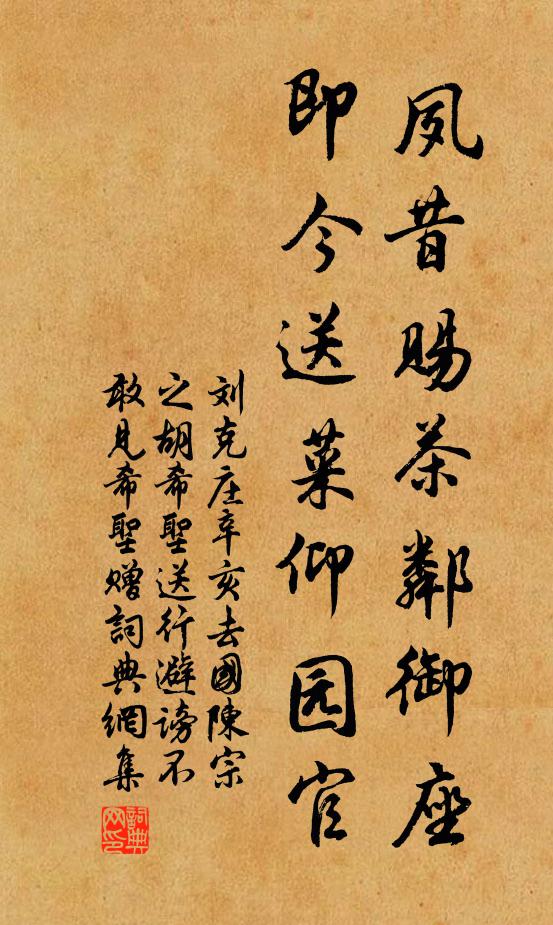 夙昔賜茶鄰御座
即今送菜仰园官
刘克庄辛亥去國陳宗
之胡希聖送行避謗不
敢見希聖贈詞典網集
詞典网印